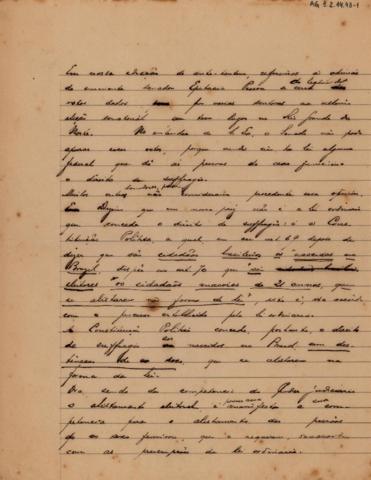 AG 8.2.14.93-1
Em nossa edição de ante-hontem, referimos a opinião
do eminente senador Epitacio Pessoa a cerca da legalidade dos
votos dados por varias senhoras na ultima
eleição senatorial que teve lugar no Rio Grande do
Norte. No entender de S. Ex., o Senado não pode
apurar esses votos, porque não existe lei alguma
federal que dê ás pessoas do sexo feminino
o direito de suffragio.
Muitos outros não consideram procedente essa opinião.
Dizem que em nosso paiz não é a lei ordinaria
que concede o direito de suffragio: é a Cons-
tituição Politica, a qual, em seu art. 69 depois de
dizer que são cidadãos brasileiros os nascidos no
Brazil, dispõe no art. 70 que "são
eleitores os cidadãos maiores de 21 annos, que
se alistarem na forma da lei", isto é, de accordo
com o processo estabelecido pela lei ordinaria.
A Constituição Politica concede, portanto, o direito
de suffragio aos nascidos no Brasil sem dis-
tincção de sexo, que se alistarem na
forma da lei.
Ora, sendo da competencia do Poder Judiciario
o alistamento eleitoral, é manifesta a sua com-
petencia para o alistamento das pessoas
do sexo feminino, que o requeiram, de accordo
com as prescripções da lei ordinaria.